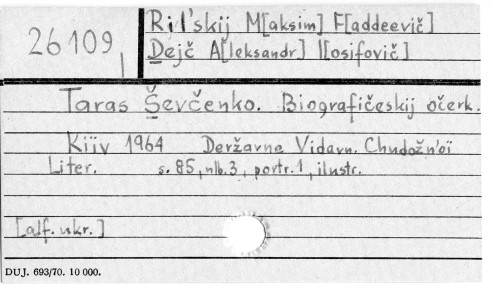 26109
Ril'skij M[aksim] F[addeevič]
Dejč A[leksandr] I[osifovič]
Taras Ševčenko. Biografičeskij očerk.
Kiïv 1964 Deržavne Vidavn. Chudožn'oï
Liter. s. 85, nlb. 3, portr. 1, ilustr.
[alf. ukr.]
DUJ. 693/70. 10 000.